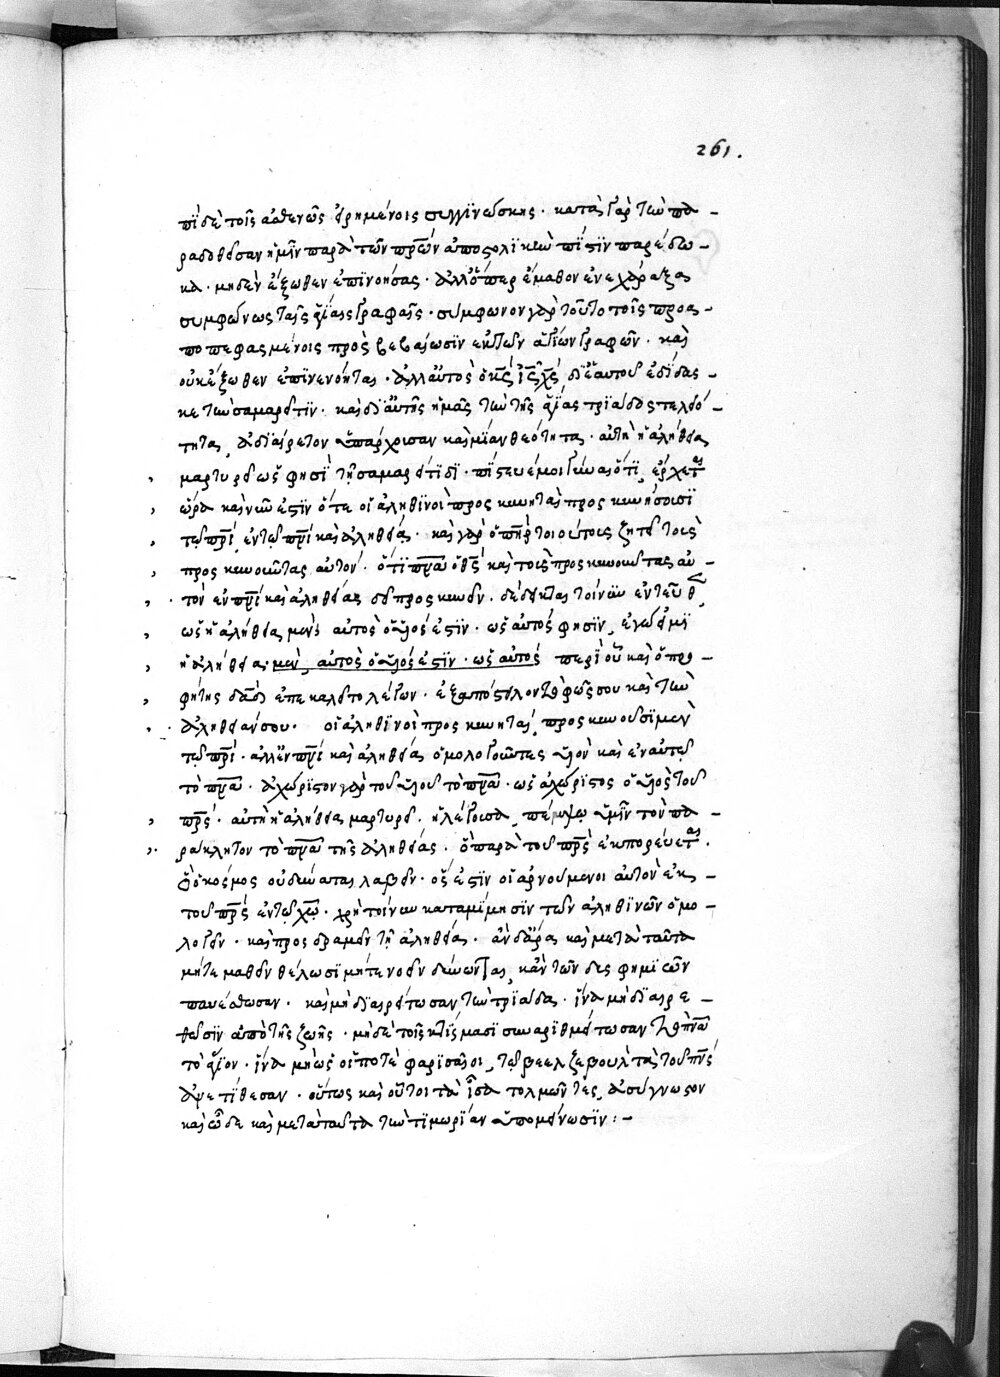 261.
πῒ δὲ τοῖς ἀσθενῶς εἰρημένοις συγγϊνώσκῃς · κατὰ γὰρ τὴν πα-
ραδοθεῖσαν ἡμῖν παρὰ τῶν πρῶν ἀποστολϊκὴν πίστϊν παρέδω-
κα · μηδὲν ἔξωθεν ἐπϊνοήσας · ἀλλ' ὅπερ ἔμαθον ἐνεχάραξα
συμφώνως ταῖς ἁγίαις γραφαῖς · σύμφωνον γὰρ τοῦτο τοῖς προα-
ποπεφασμένοις πρὸς βεβαίωσϊν ἐκ τῶν ἁγίων γραφῶν · καὶ
οὐκ ἔξωθεν ἐπϊνενόηται · ἀλλ' αὐτὸς ὁ κς ις χς δϊ' ἑαυτοῦ ἐδίδασ-
κε τὴν σαμαρεῖτϊν · καὶ δϊ' αὐτῆς ἡμᾶς τὴν τῆς ἁγίας τρϊάδος τελειό-
τητα, ἀδιαίρετον ὑπάρχουσαν καὶ μίαν θεότητα · αὐτὴ ἡ ἀλήθεια
μαρτυρεῖ ὡς φησῒ τῇ σαμαρείτιδϊ · πίστευέ μοι γύναι ὅτϊ, ἔρχεται
ὥρα καὶ νῦν ἐστϊν ὅτε οἱ ἀληθϊνοὶ προσκυνηταὶ προσκυνήσουσϊ
τῷ πρι, ἐν τῷ πνι καὶ ἀληθείᾳ · καὶ γὰρ ὁ πηρ τοιούτους ζητεῖ τοὺς
προσκυνοῦντας αὐτόν · ὅτϊ πνα ὁ θς καὶ τοὺς προσκυνοῦντας αὐ-
τὸν ἐν πνι καὶ ἀληθείᾳ δεῖ προσκυνεῖν · δέδεικται τοίνυν ἐντεῦθ,
ὡς ἡ ἀλήθεια μὲν αὐτὸς ὁ υἱός ἐστϊν · ὡς αὐτός φησϊν, ἐγώ εἰμϊ
ἡ ἀλήθεια μὲν, αὐτὸς ὁ υἱός ἐστϊν · ὡς αὐτός περὶ οὗ καὶ ὁ προ-
φήτης δαδ ἐπεκαλεῖτο λέγων · ἐξαπόστειλον τὸ φῶς σου καὶ τὴν
ἀλήθειάν σου · οἱ ἀληθϊνοὶ προσκυνηταὶ, προσκυνοῦσϊ μὲν
τῷ πρι · ἀλλ' ἐν πνι καὶ ἀληθείᾳ ὁμολογοῦντες υἱὸν καὶ ἐν αὐτῷ
τὸ πνα · ἀχώρϊστον γὰρ τοῦ υἱοῦ τὸ πνα · ὡς ἀχώρϊστος ὁ υἱὸς τοῦ
πρς · αὐτὴ ἡ ἀλήθεια μαρτυρεῖ · ἡ λέγουσα, πέμψω ὑμῖν τὸν πα-
ράκλητον τὸ πνα τῆς ἀληθείας · ὃ παρὰ τοῦ πρς ἐκπορεύεται ·
ὃ ὁ κόσμος οὐ δύναται λαβεῖν · οἵ ἐστϊν οἱ ἀρνούμενοι αὐτὸν ἐκ
τοῦ πρς ἐν τῷ χω · χρὴ τοίνυν κατὰ μίμησϊν τῶν ἀληθϊνῶν ὁμο-
λογεῖν · καὶ προσδραμεῖν τῇ ἀληθείᾳ · ἂν δὲ ἄρα καὶ μετὰ ταῦτα
μήτε μαθεῖν θέλωσϊ μήτε νοεῖν δύνωνται, κἂν τῶν δυσφημϊῶν
παυέσθωσαν · καὶ μὴ διαιρείτωσαν τὴν τρϊάδα · ἵνα μὴ διαιρε-
θῶσϊν ἀπὸ τῆς ζωῆς · μηδὲ τοῖς κτίσμασϊ συναριθμείτωσαν τὸ πνα
τὸ ἅγϊον · ἵνα μὴ ὡς οἵ ποτὲ φαρισαῖοι, τῷ βεελζεβοὺλ τὰ τοῦ πνς
ἀνετίθεσαν · οὕτως καὶ οὗτοι τὰ ἶσα τολμῶντες, ἀσύγνωστον
καὶ ὧδε καὶ μετὰ ταῦτα τὴν τϊμωρίαν ὑπομείνωσϊν : -